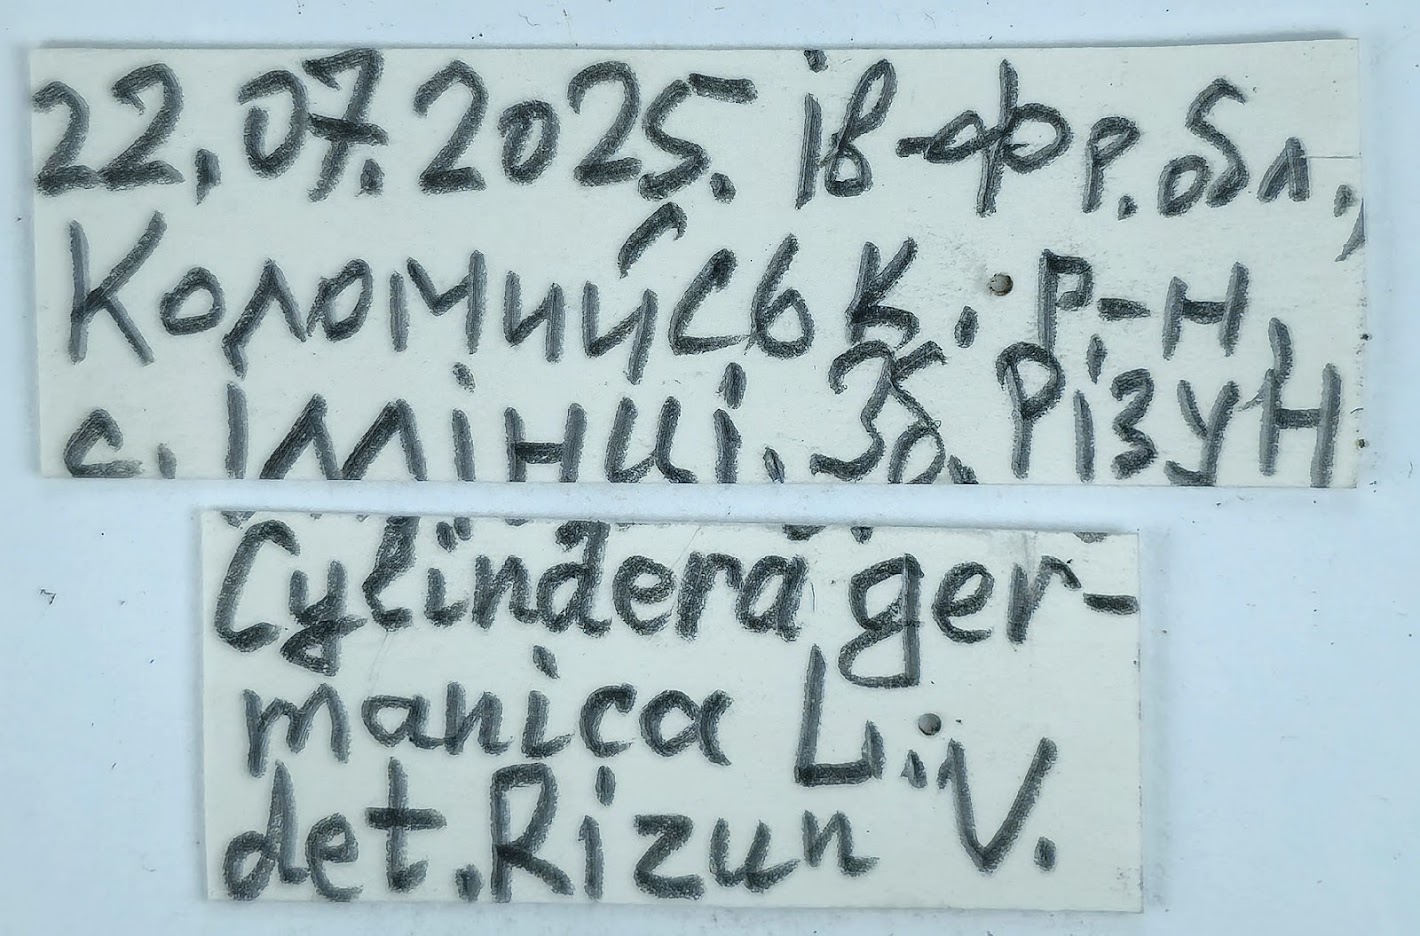 22.07.2025. Ів-Фр. обл.,
Коломийськ. р-н,
с. Іллінці. Зб. Різун
Cylindera ger-
manica L.
det. Rizun V.